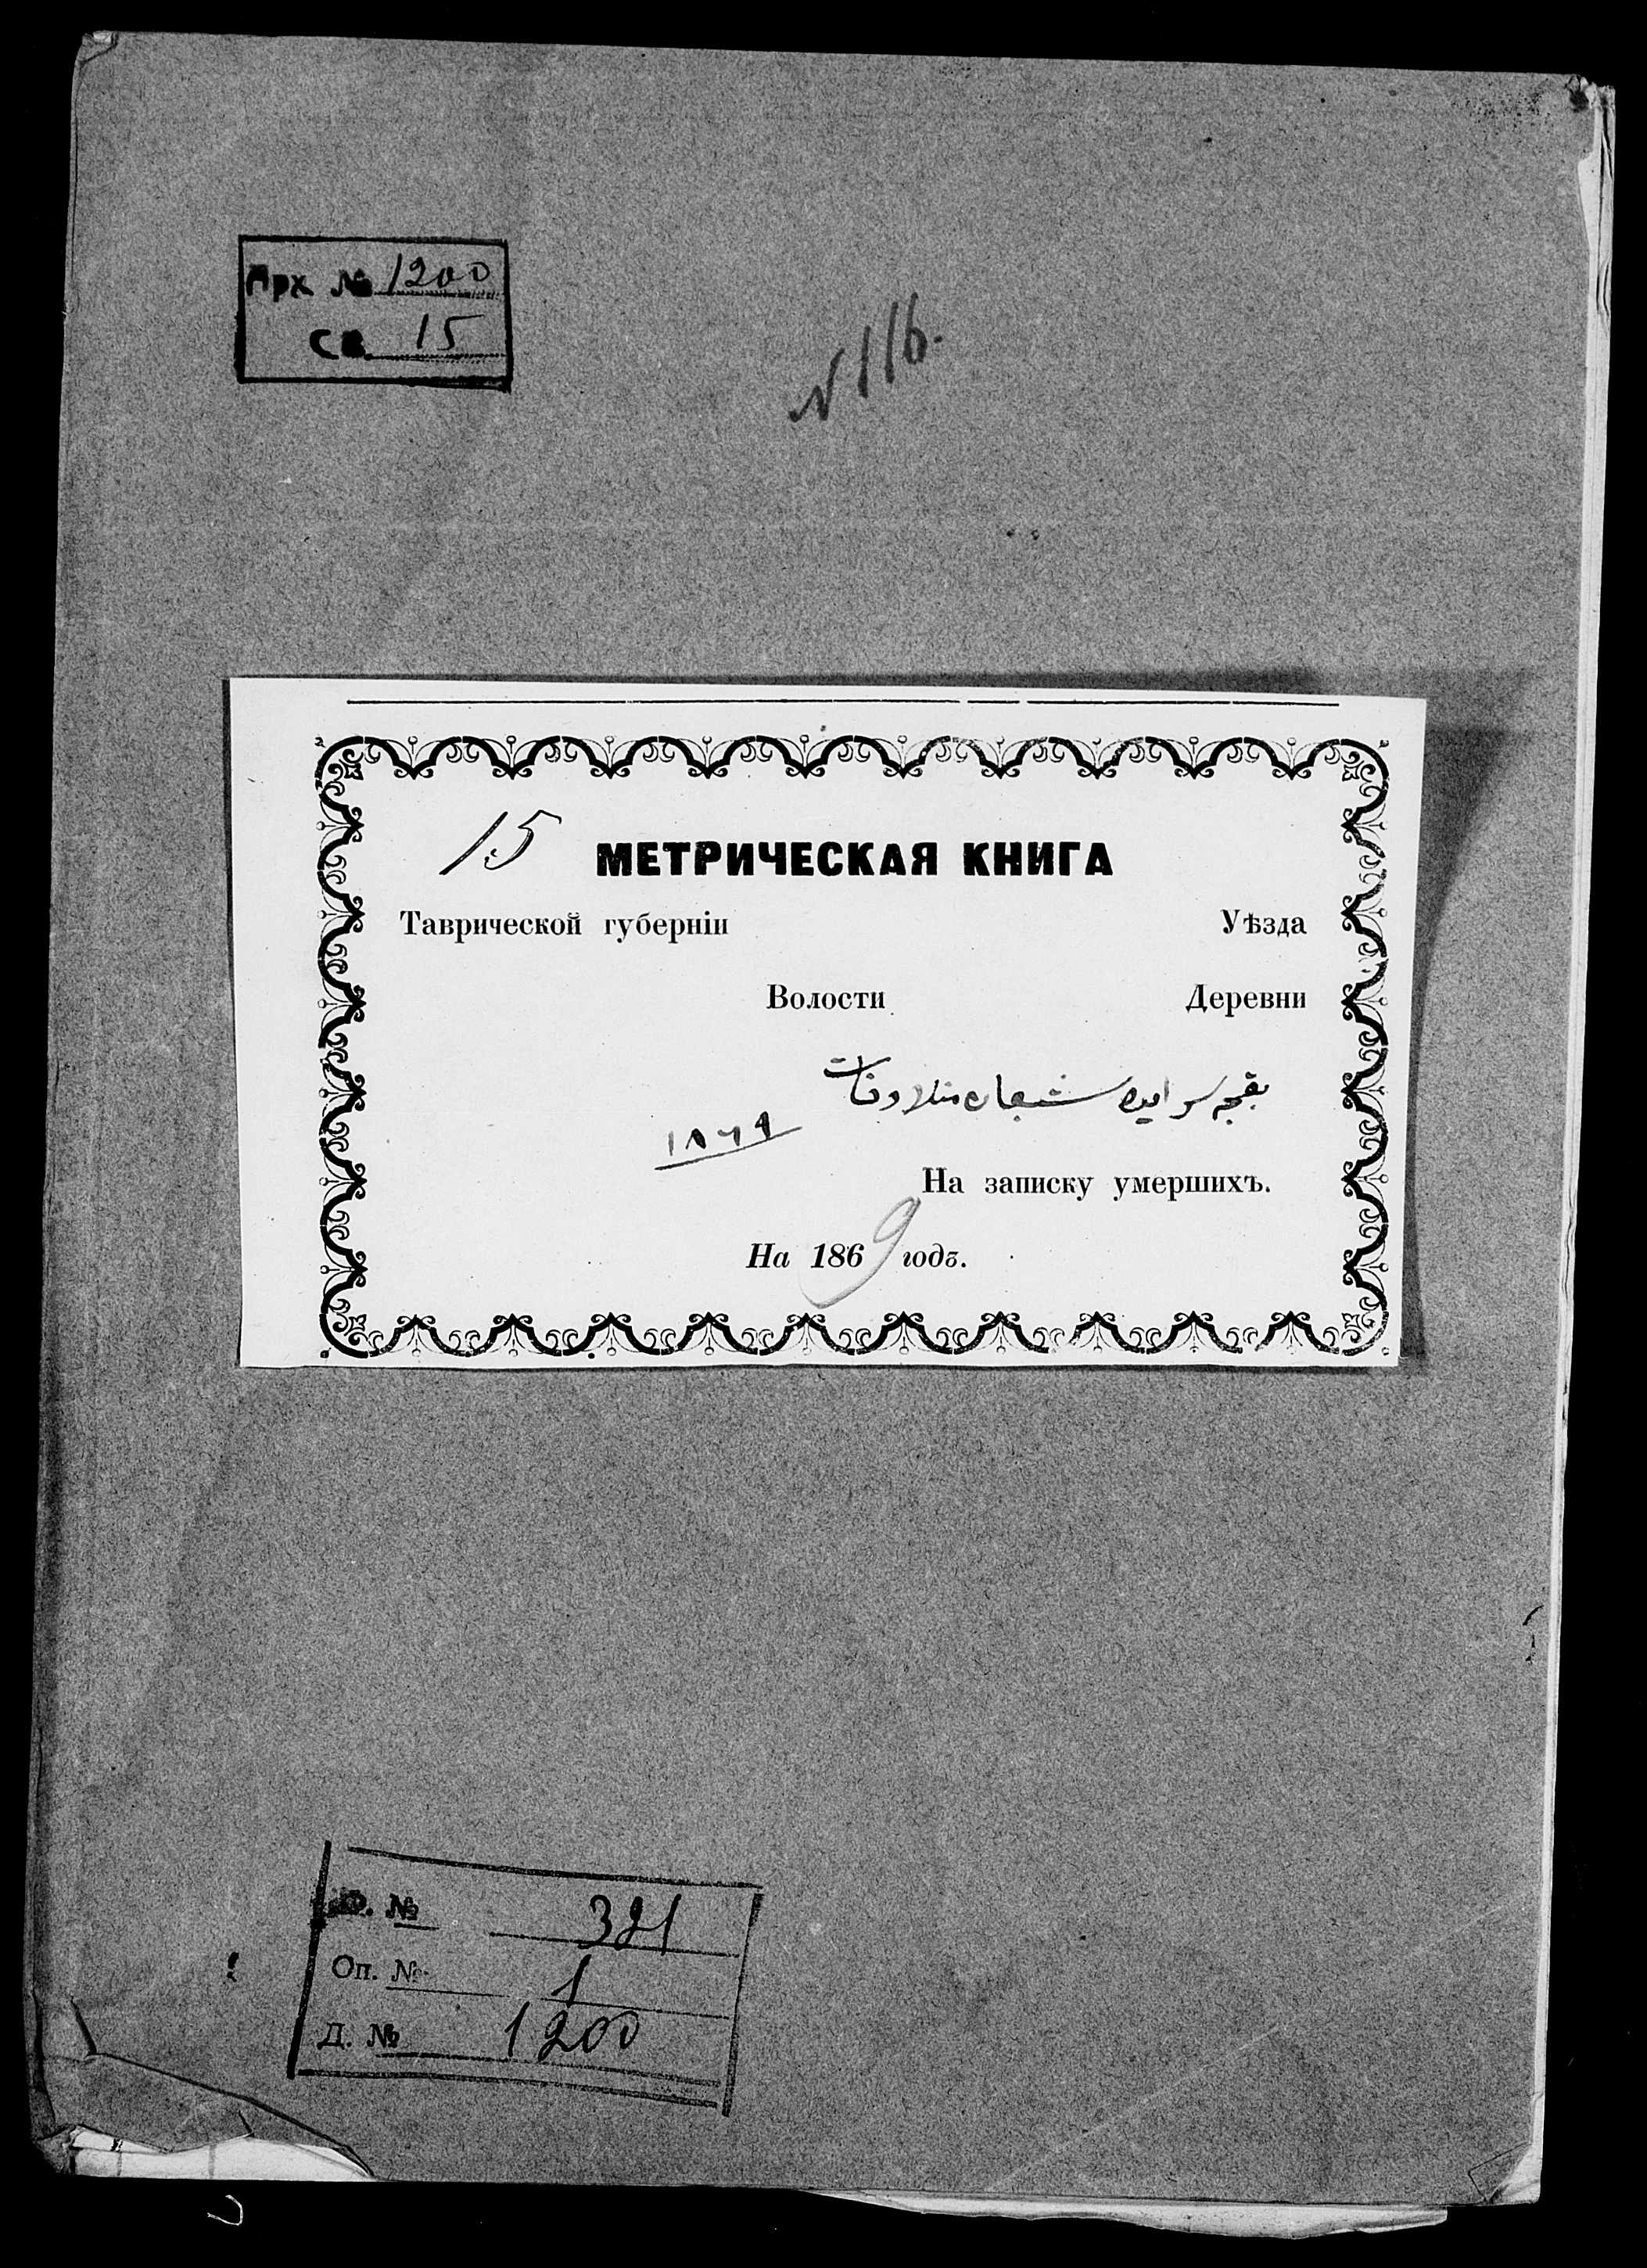 Арх № 1200
св. 15
N 116.
15 МЕТРИЧЕСКАЯ КНИГА
Таврической губерніи Уѣзда
Волости Деревни
بقچه سرایده شعبان منلا وفات
١٨٦٩
На записку умершихъ.
На 1869 годъ.
Ф. № 321
Оп. № 1
Д. № 1200